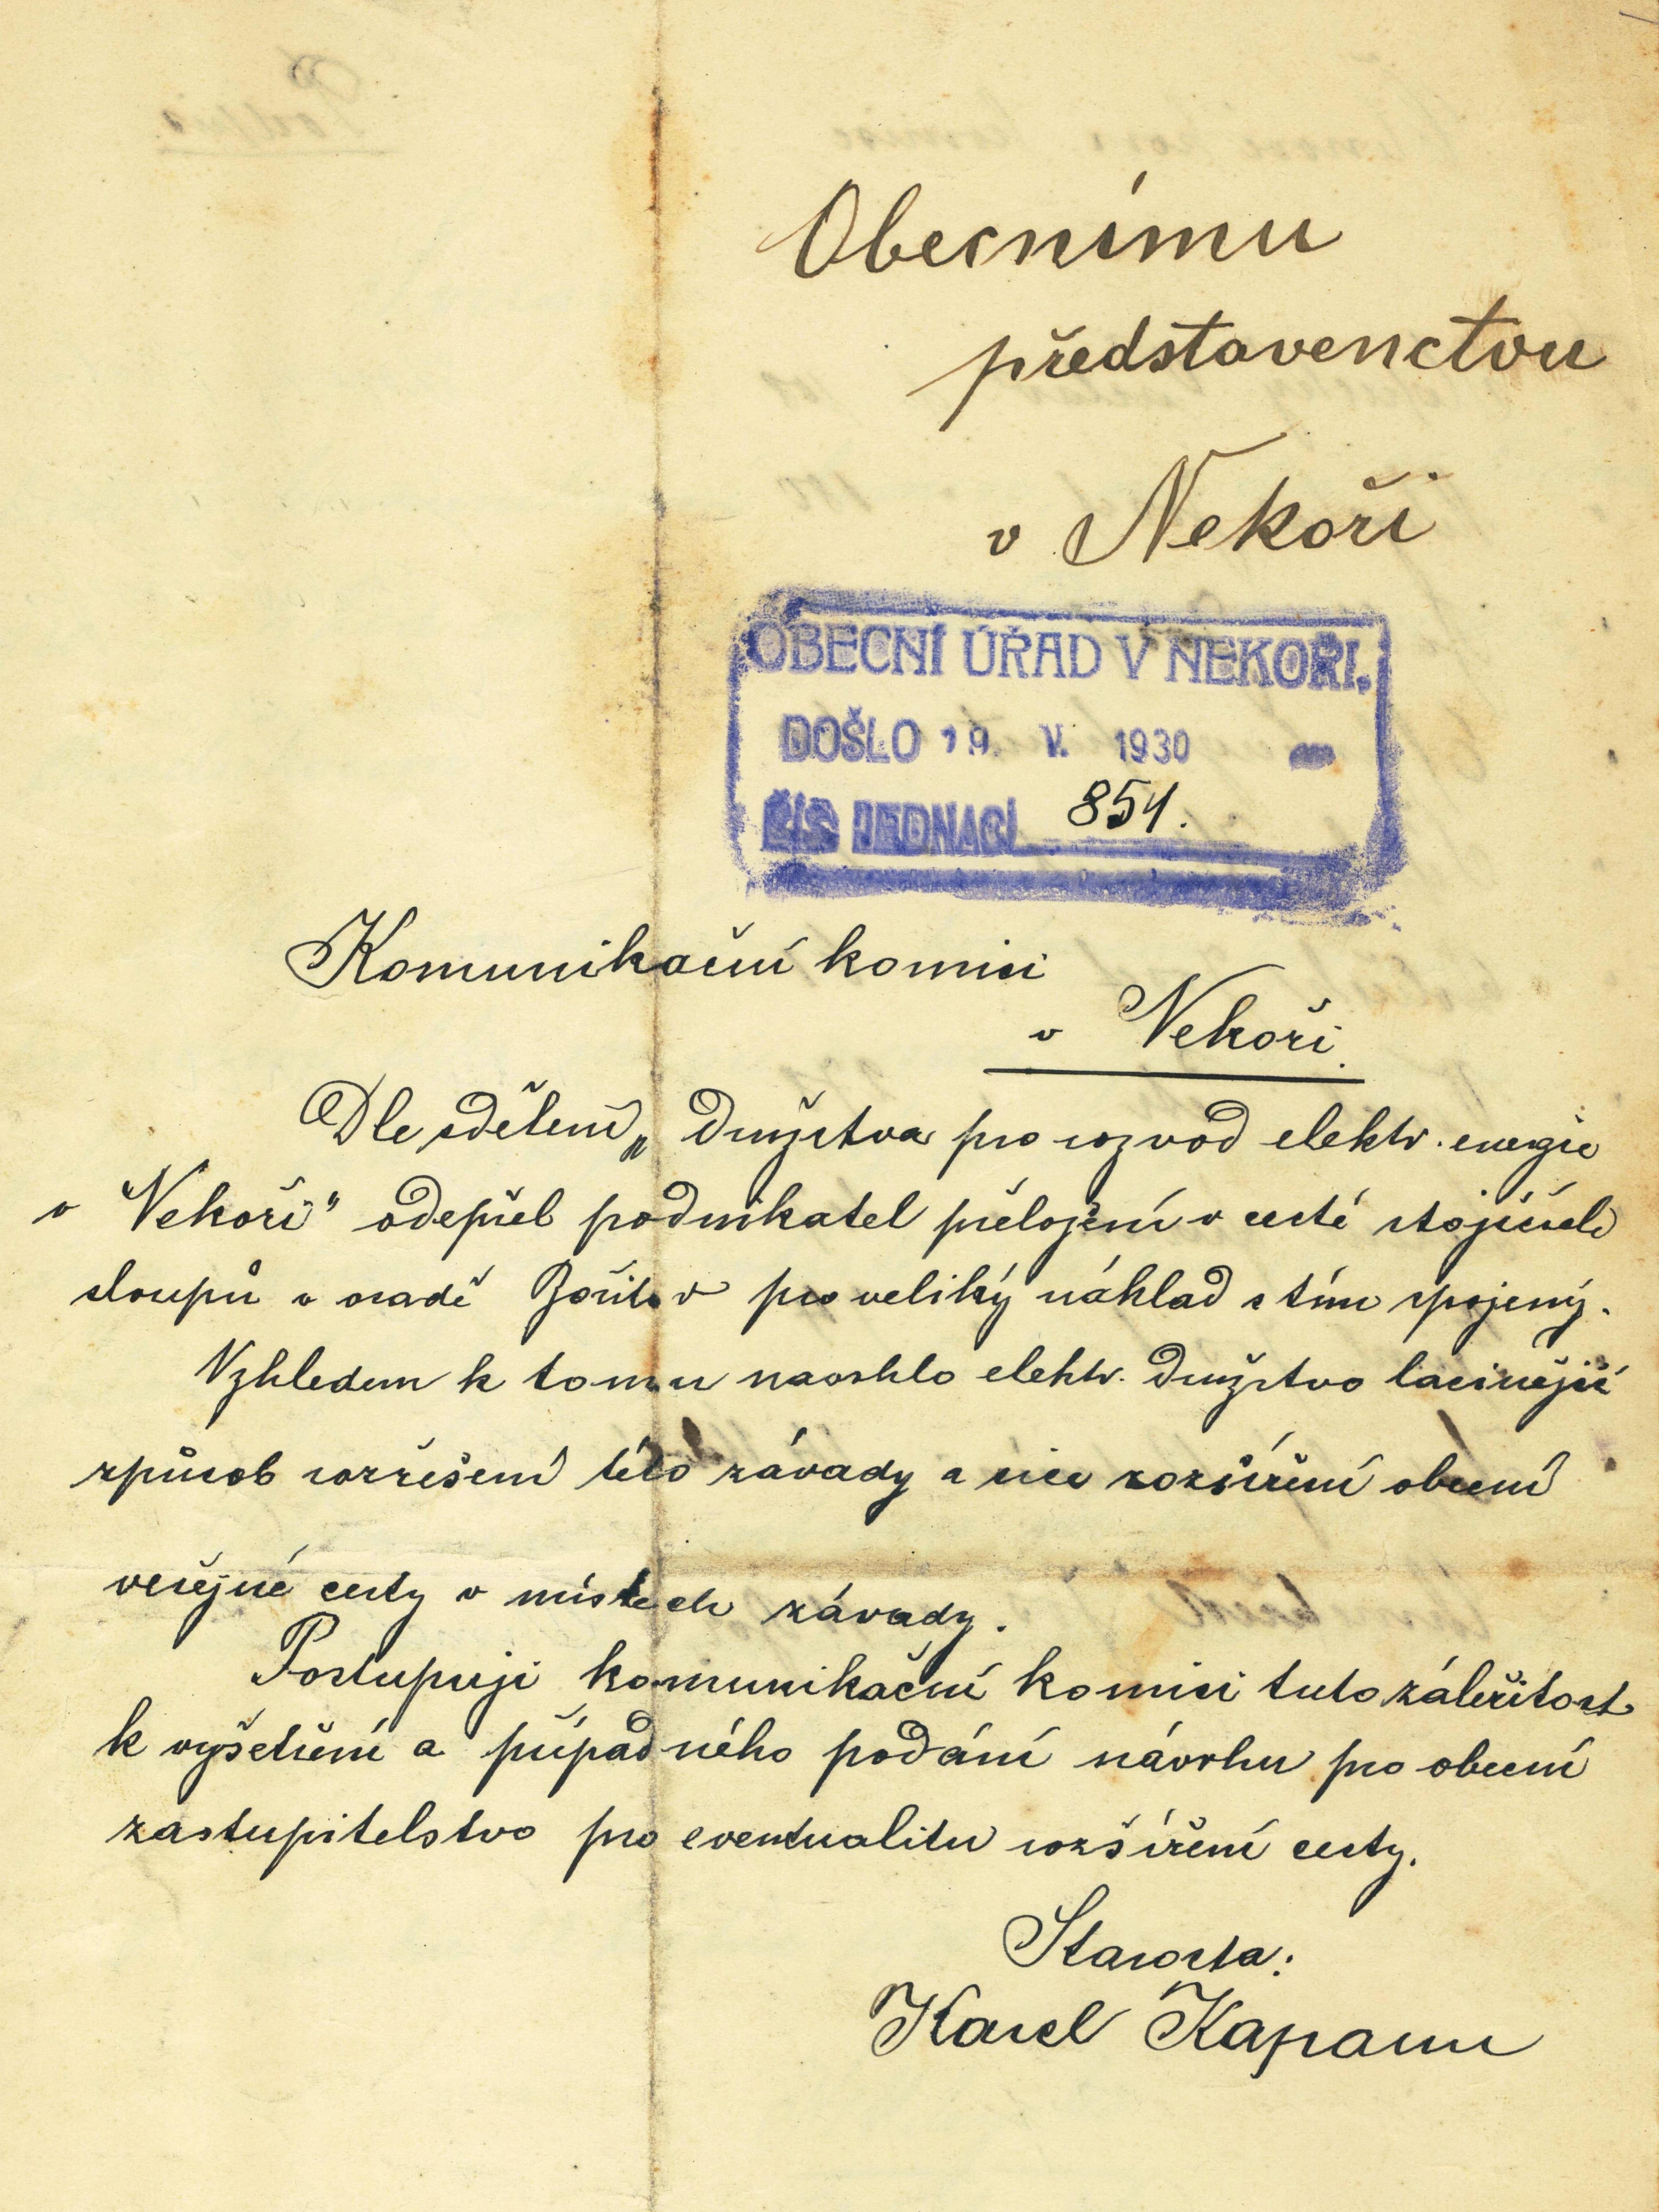 Obecnímu
představenctvu
v Nekoři
OBECNÍ ÚŘAD V NEKOŘI.
DOŠLO 19. V. 1930
ČÍS JEDNACÍ 851.
Komunikační komisi
v Nekoři.
Dle sdělení „Družstva pro rozvod elektr. energie
v Nekoři" odepřel podnikatel přeložení v cestě stojících
sloupů v osadě Bořitov pro veliký náklad s tím spojený.
Vzhledem k tomu navrhlo elektr. družstvo lacinější
způsob rozřešení této závady a sice rozšíření obecní
veřejné cesty v místech závady.
Postupuji komunikační komisi tuto záležitost
k vyšetření a případného podání návrhu pro obecní
zastupitelstvo pro eventualitu rozšíření cesty.
Starosta:
Karel